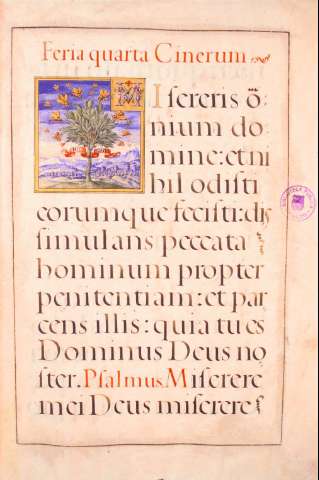 Feria quarta Cinerum
Isereris õ
nium do
mine: et ni
hil odisti
eorumque fecisti: dis
simulans peccata
hominum propter
penitentiam: et par
cens illis: quia tu es
Dominus Deus no
ster. Psalmus. Miserere
mei Deus miserere